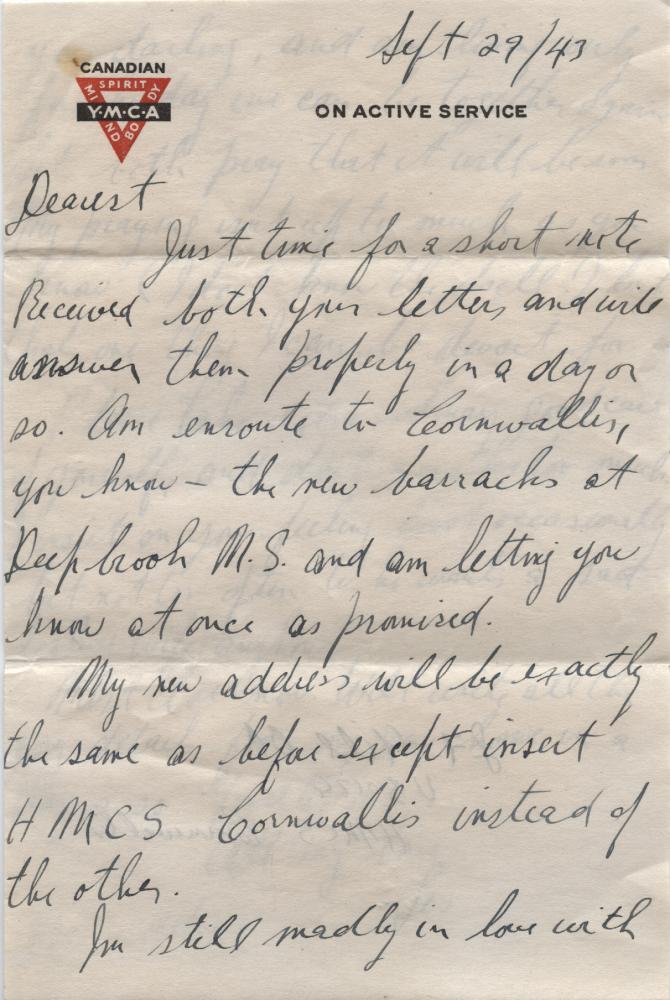 Sept 29/43
CANADIAN
SPIRIT
MIND
BODY
Y·M·C·A
ON ACTIVE SERVICE
Dearest
Just time for a short note
Received both your letters and will
answer them properly in a day or
so. Am enroute to Cornwallis,
you know - the new barracks at
Deepbrook N.S. and am letting you
know at once as promised.
My new address will be exactly
the same as before except insert
H M C S Cornwallis instead of
the other.
I'm still madly in love with